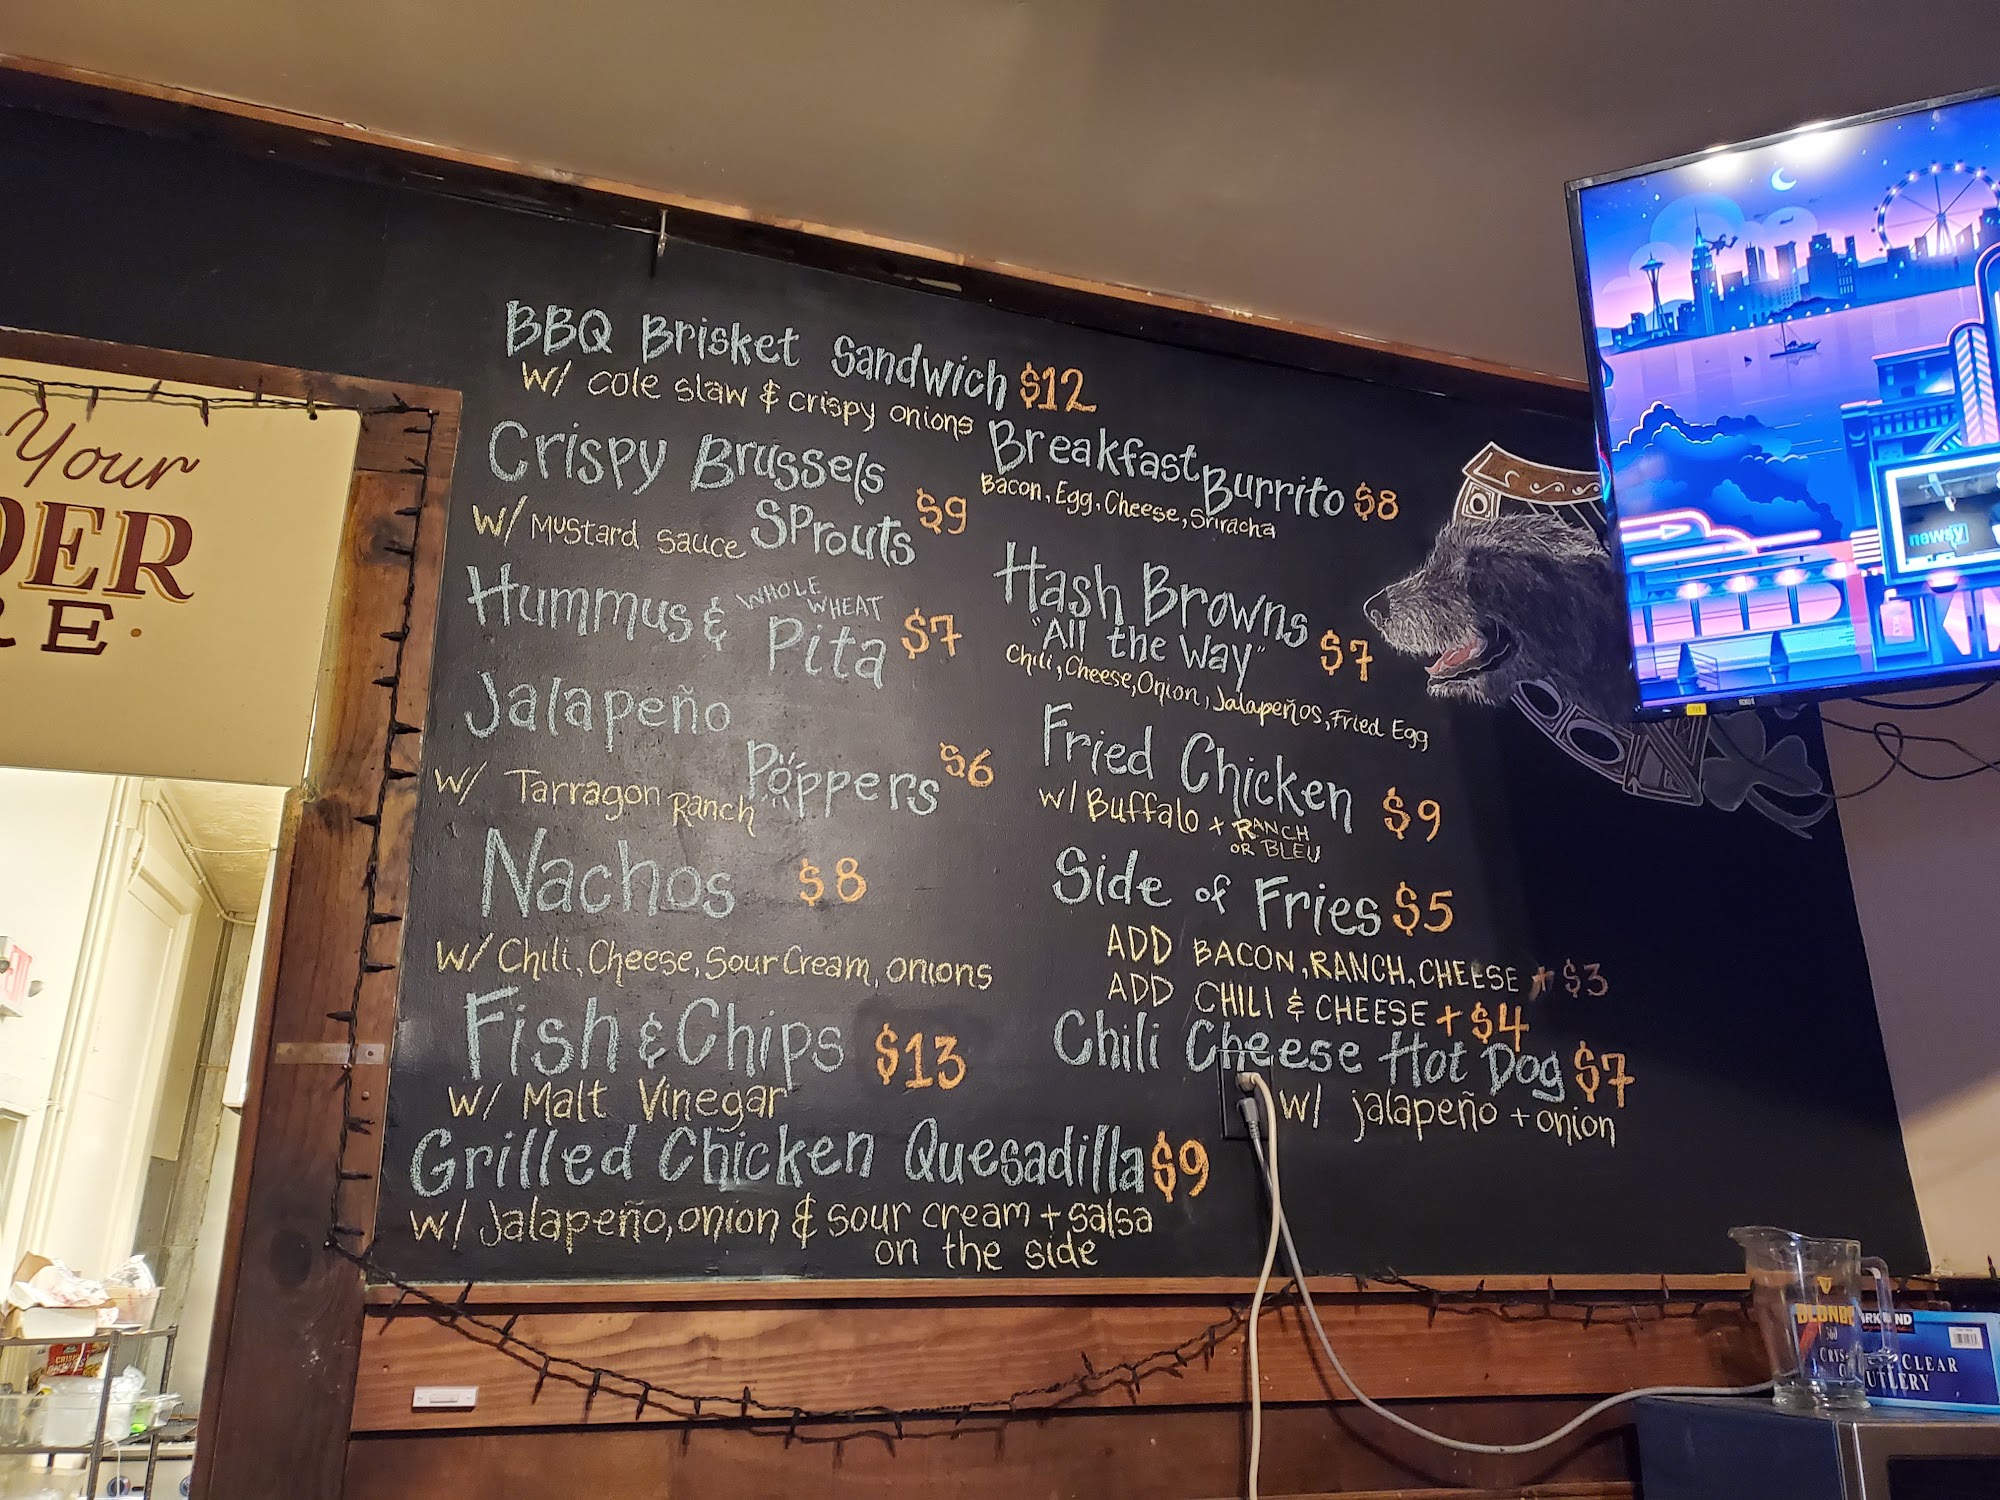 Your
DER
RE.
BBQ Brisket Sandwich $12
w/ cole slaw & crispy onions
Crispy Brussels
Sprouts $9
w/ Mustard sauce
Hummus & WHOLE WHEAT Pita $7
Jalapeño
Poppers $6
w/ Tarragon Ranch
Nachos $8
w/ Chili, Cheese, Sour Cream, onions
Fish & Chips $13
w/ Malt Vinegar
Grilled Chicken Quesadilla $9
w/ Jalapeño, onion & sour cream + salsa
on the side
Breakfast Burrito $8
Bacon, Egg, Cheese, Sriracha
Hash Browns
"All the Way" $7
Chili, Cheese, Onion, Jalapeños, Fried Egg
Fried Chicken $9
w/ Buffalo + RANCH
OR BLEU
Side of Fries $5
ADD BACON, RANCH, CHEESE + $3
ADD CHILI & CHEESE + $4
Chili Cheese Hot Dog $7
w/ jalapeño + onion
newsy
BLONDE
CLEAR